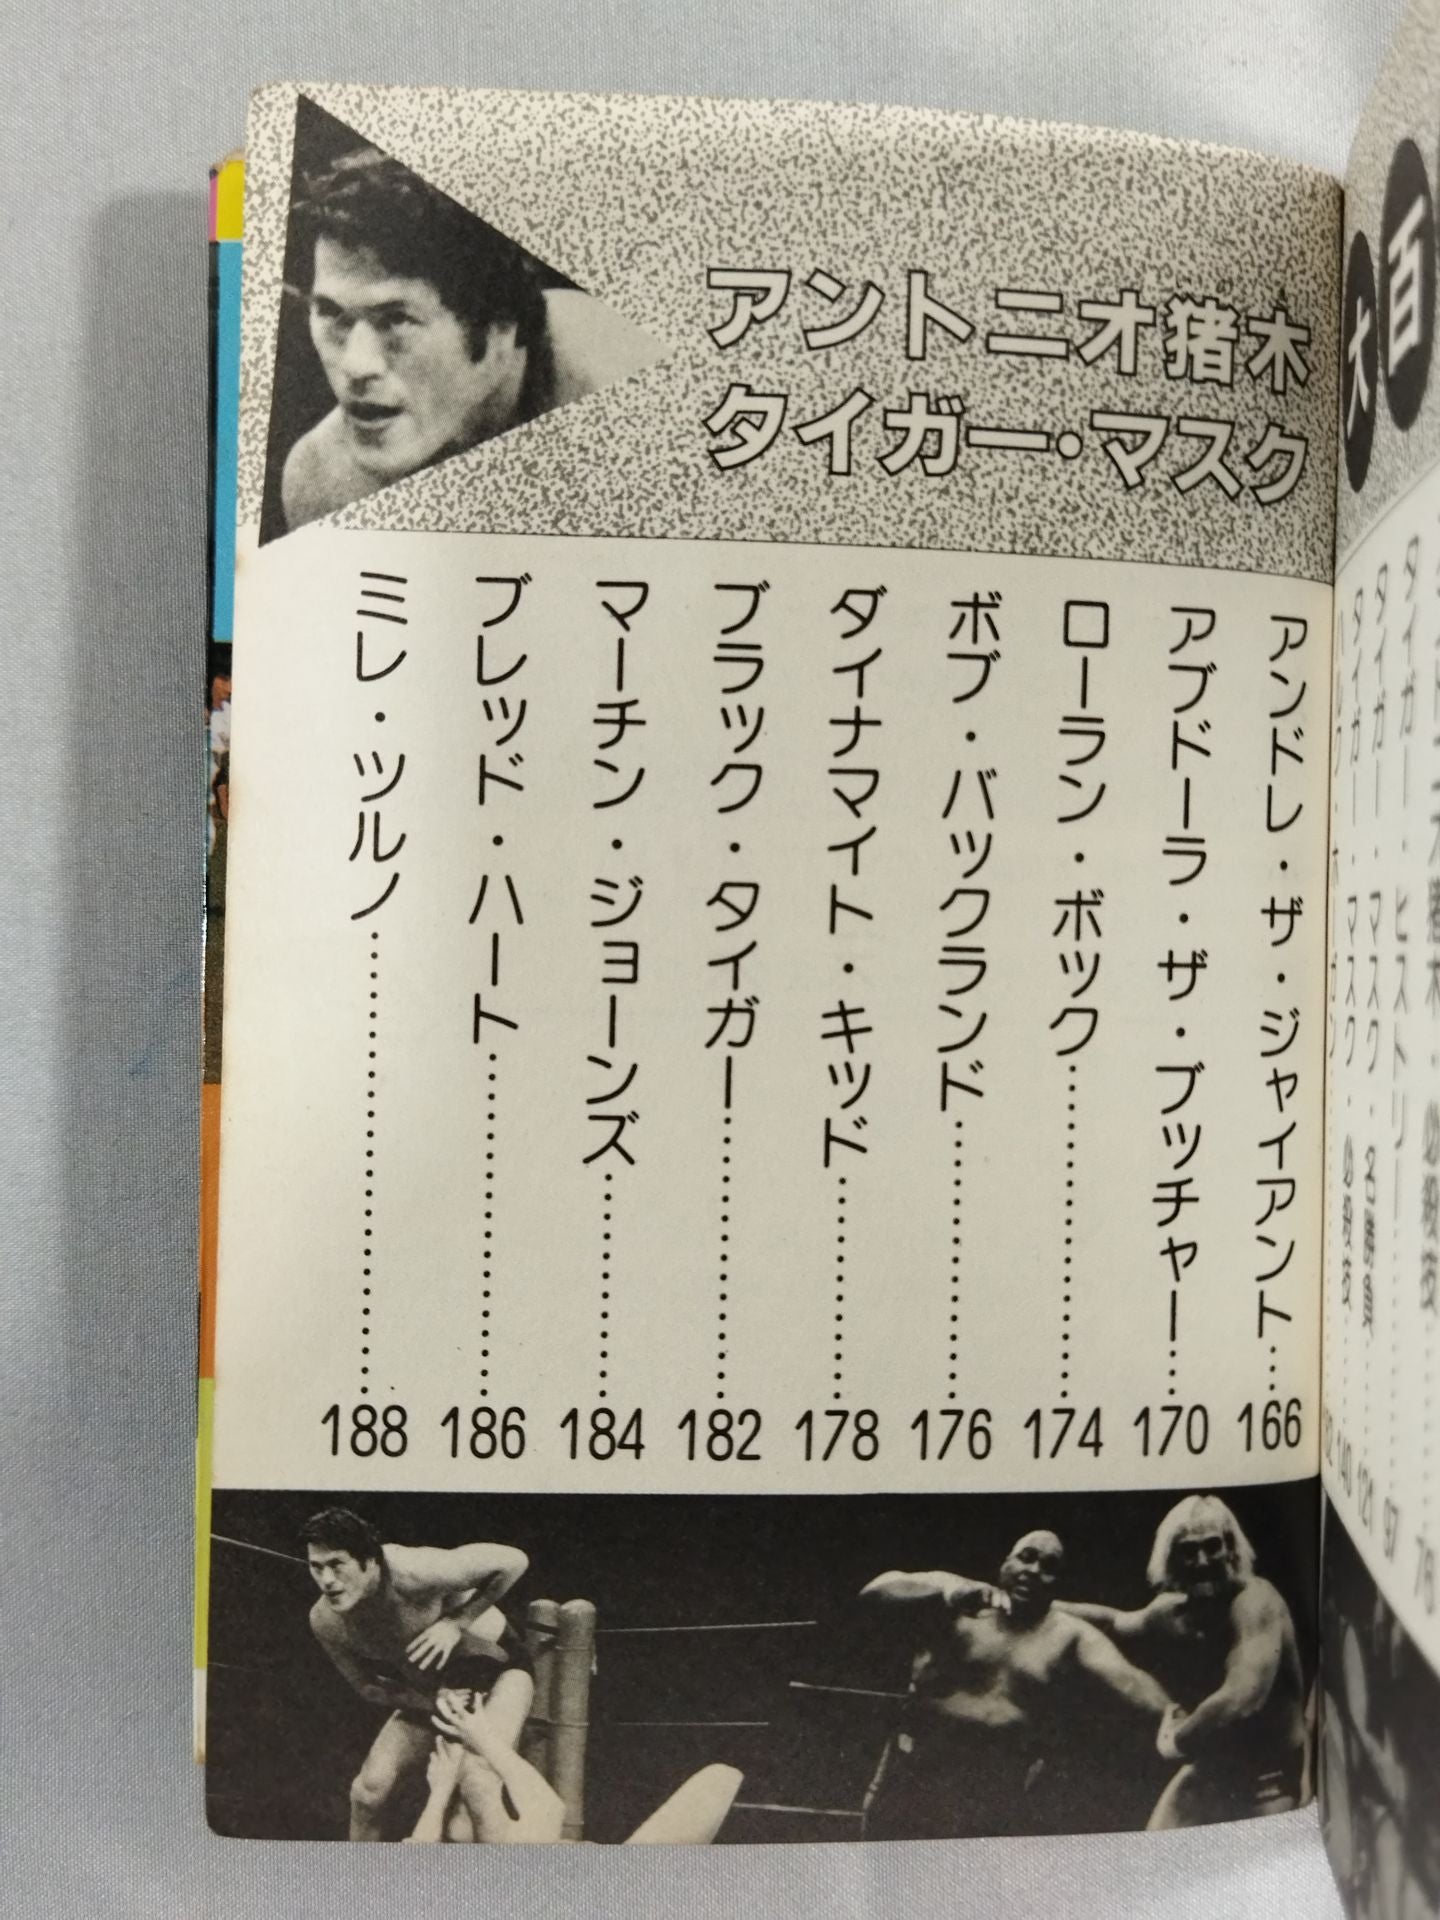 アントニオ猪木
タイガー・マスク
アンドレ・ザ・ジャイアント…166
アブドーラ・ザ・ブッチャー…170
ローラン・ボック…………174
ボブ・バックランド…………176
ダイナマイト・キッド…………178
ブラック・タイガー…………182
マーチン・ジョーンズ…………184
ブレッド・ハート…………186
ミレ・ツルノ…………188
百
大
タイガー・ヒストリー…97
タイガー・マスク・…121
タイガー・マスク・…140